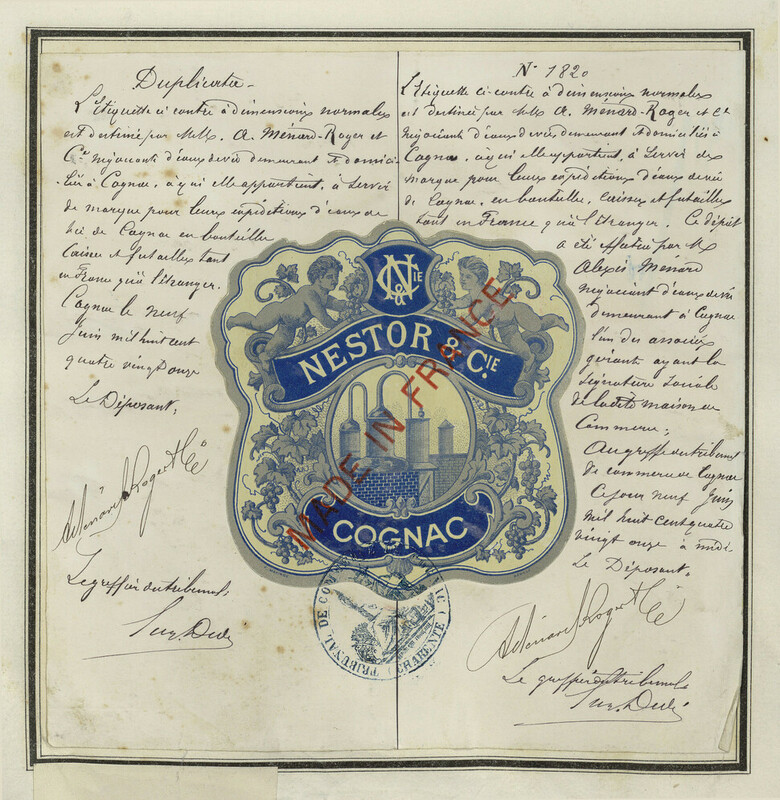 Duplicata
L'étiquette ci-contre à dimensions normales
est destinée par MM. A. Ménard-Roger et
Cie négociants d'eaux de vie demeurant et domici-
liés à Cognac, à qui elle appartient, à servir
de marque pour leurs expéditions d'eaux de
vie de Cognac en bouteilles
caisses et futailles tant
en France qu'à l'étranger.
Cognac le neuf
Juin mil huit cent
quatre vingt onze
Le Déposant,
A Ménard Roger & Cie
Le greffier du tribunal,
No 1820
L'étiquette ci-contre à dimensions normales
est destinée par MM. A. Ménard-Roger et Cie
négociants d'eaux de vie demeurant et domiciliés à
Cognac, à qui elle appartient, à servir de
marque pour leurs expéditions d'eaux de vie
de Cognac, en bouteilles, caisses et futailles
tant en France qu'à l'étranger. Ce dépôt
a été effectué par M.
Alexis Ménard
négociant d'eaux de vie
demeurant à Cognac
l'un des associés
gérants ayant la
signature sociale
de la dite maison de
Commerce;
Au greffe du tribunal
de commerce de Cognac
Ce jour neuf Juin
mil huit cent quatre
vingt onze à midi
Le Déposant
A Ménard Roger & Cie
Le greffier du tribunal
N & CIE
NESTOR & CIE
COGNAC
MADE IN FRANCE
TRIBUNAL DE COMMERCE DE COGNAC (CHARENTE)